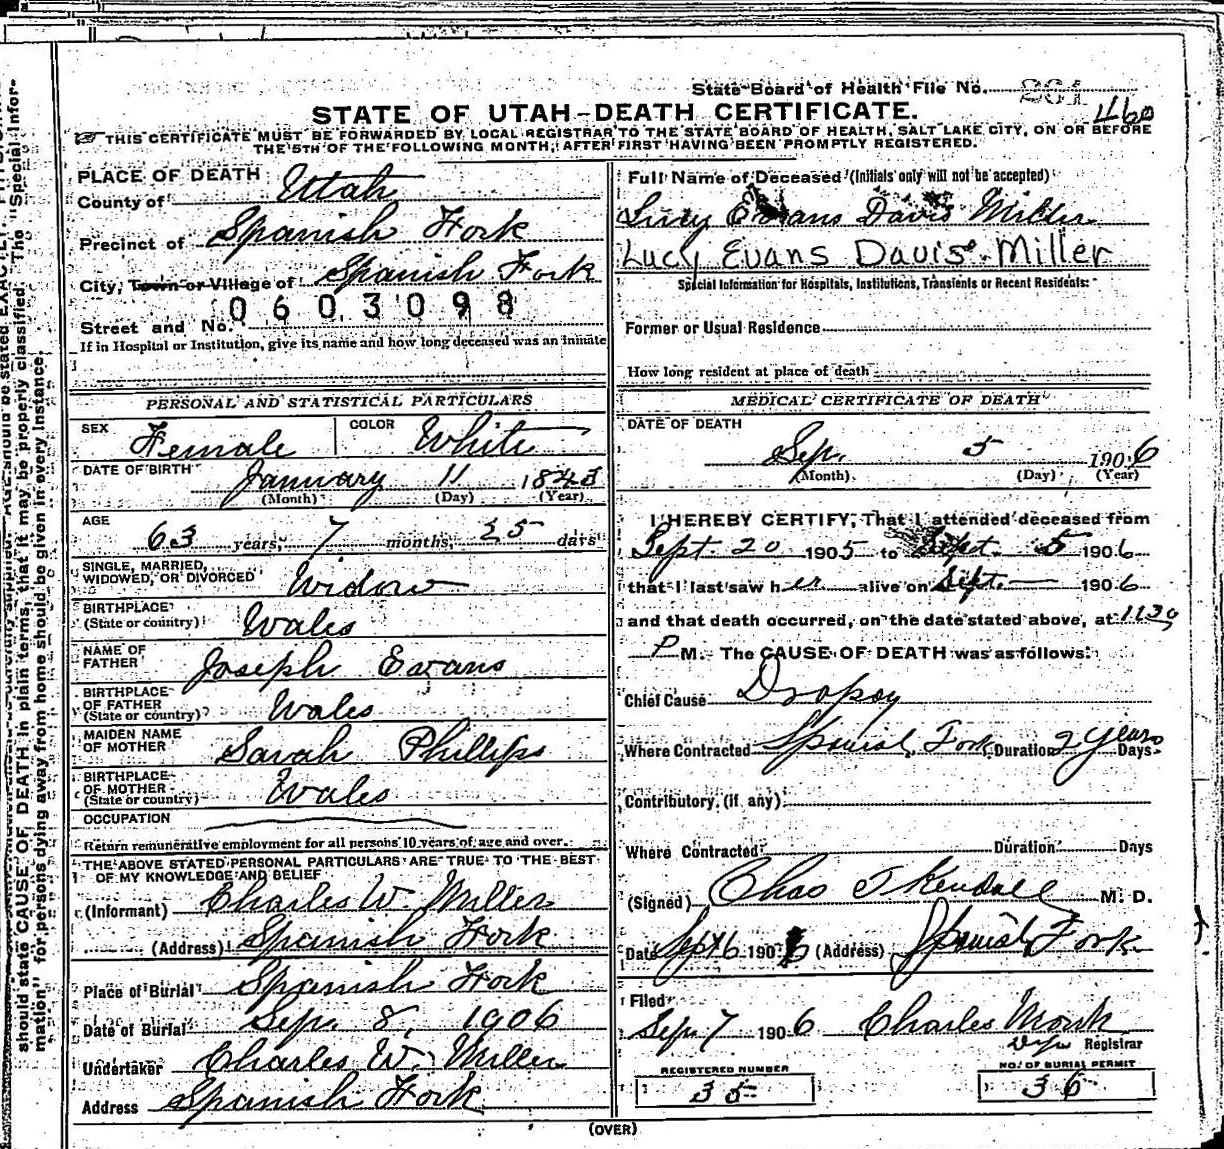 State Board of Health File No. 261
460
STATE OF UTAH-DEATH CERTIFICATE.
THIS CERTIFICATE MUST BE FORWARDED BY LOCAL REGISTRAR TO THE STATE BOARD OF HEALTH, SALT LAKE CITY, ON OR BEFORE
THE 5TH OF THE FOLLOWING MONTH, AFTER FIRST HAVING BEEN PROMPTLY REGISTERED.
PLACE OF DEATH
County of Utah
Precinct of Spanish Fork
City, Town or Village of Spanish Fork
0603098
Street and No.
If in Hospital or Institution, give its name and how long deceased was an inmate
PERSONAL AND STATISTICAL PARTICULARS
SEX Female COLOR White
DATE OF BIRTH January 11 1843
(Month) (Day) (Year)
AGE 63 years, 7 months, 25 days
SINGLE, MARRIED,
WIDOWED, OR DIVORCED Widow
BIRTHPLACE
(State or country) Wales
NAME OF
FATHER Joseph Evans
BIRTHPLACE
OF FATHER
(State or country) Wales
MAIDEN NAME
OF MOTHER Sarah Phillips
BIRTHPLACE
OF MOTHER
(State or country) Wales
OCCUPATION
Return remunerative employment for all persons 10 years of age and over.
THE ABOVE STATED PERSONAL PARTICULARS ARE TRUE TO THE BEST
OF MY KNOWLEDGE AND BELIEF
(Informant) Charles W. Miller
(Address) Spanish Fork
Place of Burial Spanish Fork
Date of Burial Sep. 8, 1906
Undertaker Charles W. Miller
Address Spanish Fork
Full Name of Deceased (Initials only will not be accepted)
Lucy Evans Davis Miller
Lucy Evans Davis Miller
Special Information for Hospitals, Institutions, Transients or Recent Residents:
Former or Usual Residence
How long resident at place of death
MEDICAL CERTIFICATE OF DEATH
DATE OF DEATH
Sep. 5 1906
(Month) (Day) (Year)
I HEREBY CERTIFY, That I attended deceased from
Sept. 20 1905 to Sept. 5 1906
that I last saw her alive on Sept. 1906
and that death occurred, on the date stated above, at 11 30
P M. The CAUSE OF DEATH was as follows:
Chief Cause Dropsy
Where Contracted Spanish Fork Duration 2 years Days
Contributory (if any)
Where Contracted Duration Days
(Signed) Chas J Kendall M. D.
Date Sept 6 1906 (Address) Spanish Fork
Filed
Sep. 7 1906 Charles Monk
Dep Registrar
REGISTERED NUMBER
35
NO. OF BURIAL PERMIT
36
(OVER)
should state CAUSE OF DEATH in plain terms, that it may be properly classified. The "Special Infor-
mation" for persons dying away from home should be given in every instance.